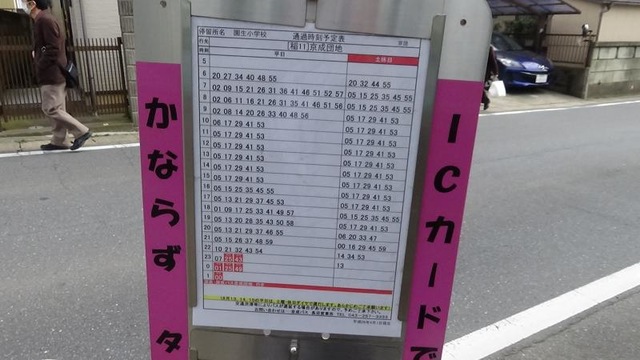 停留所名 園生小学校 通過時刻予定表
[稲11]京成団地
平日 土休日
5
6 20 27 34 40 48 55 20 32 44 55
7 02 09 15 21 26 31 36 41 46 51 52 57 05 15 25 35 45 55
8 02 06 11 16 21 26 31 35 41 46 51 56 05 15 25 35 45 55
9 02 08 14 20 26 33 40 48 56 05 17 29 41 53
10 06 17 29 41 53 05 17 29 41 53
11 05 17 29 41 53 05 17 29 41 53
12 05 17 29 41 53 05 17 29 41 53
13 05 17 29 41 53 05 17 29 41 53
14 05 17 29 41 53 05 17 29 41 53
15 05 17 29 41 53 05 17 29 41 53
16 05 15 25 35 45 55 05 17 29 41 53
17 05 13 21 29 37 45 53 05 17 29 41 53
18 01 09 17 25 33 41 49 57 05 15 25 35 45 55
19 05 13 20 28 35 43 50 58 05 17 29 41 53
20 05 13 21 29 37 46 55 06 20 33 47
21 05 15 26 37 48 59 00 16 29 45 59
22 10 21 32 43 54 14 34 53
23 07 13
0
1
かならず タ
ICカードで